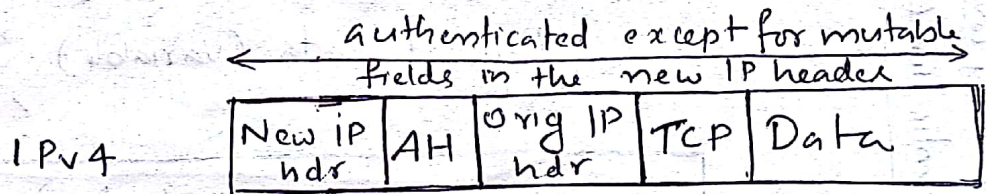 authenticated except for mutable
fields in the new IP header
IPv4
New iP hdr | AH | Orig IP hdr | TCP | Data